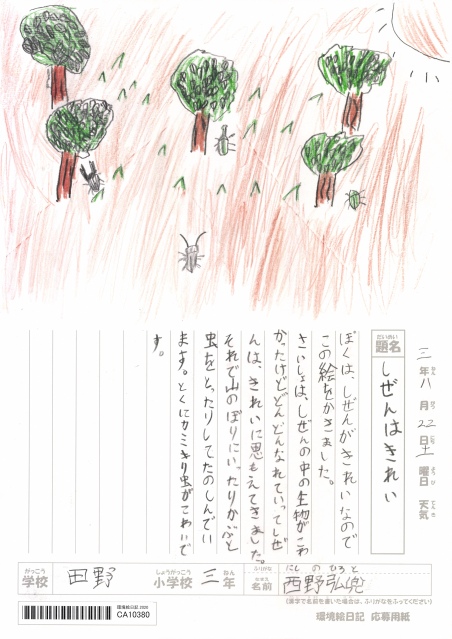 三年八月22日土曜日 天気
ねん がつ にち ようび てんき
だいめい
題名 しぜんはきれい
ぼくは、しぜんがきれいなので
この絵をかきました。
さいしょは、しぜんの中の生物がこわ
かったけどどんどんなれていってしぜ
んは、きれいに思もえてきました。
それで山のぼりにいったりかぶと
虫をとったりしてたのしんでい
ます。とくにカミキリ虫がこわいで
す。
がっこう しょうがっこう ねん ふりがな にしの ひろと
学校 田野 小学校 三年 なまえ 名前 西野弘
(漢字で名前を書いた場合は、ふりがなをふってください)
環境絵日記 2020
CA10380
環境絵日記 応募用紙